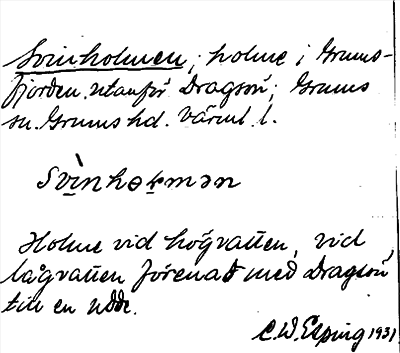 Svinholmen, holme i Grums-
fjorden utanför Dragsön; Grums
sn. Grums hd. Värml. l.
Holme vid högvatten, vid
lågvatten förenad med Dragsön
till en udde.
C.W. Esping 1931